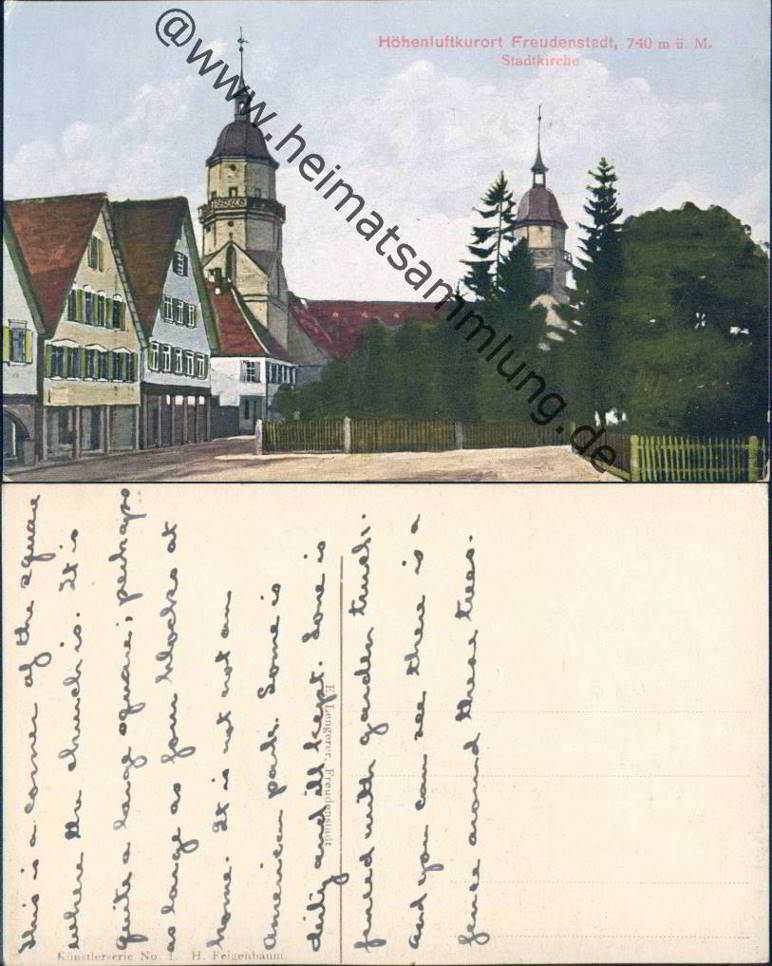 Höhenluftkurort Freudenstadt, 740 m ü. M.
Stadtkirche
@www.heimatsammlung.de
This is a corner of the square
where the church is. It is
quite a large square; perhaps
as large as four blocks at
home. It is not not an
American park. Some is
dirty and ill kept. Some is
fenced with garden truck.
and you can see there is a
fence around these trees.
E. Lengerer, Freudenstadt
Künstlerserie No. 1. H. Feigenbaum.